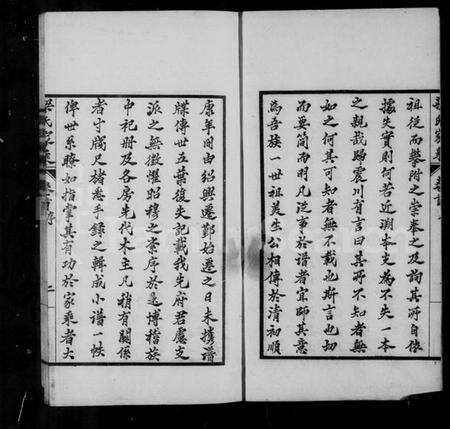 祖從而攀附之崇奉之及詢其所自依
據失實則何若近溯本支為不失一本
之親哉歸震川有言曰其所不知者無
如之何其可知者無不載也斯言也切
而要簡而明凡從事於譜者宜師其意
焉吾族一世祖美生公相傳於清初順
康年間由紹興遷鄞始遷之日未攜譜
牒傳世五葉復失記載我先府君慮支
派之無徵懼昭穆之紊序於是博稽族
中祀冊及各房先代木主凡稍有關係
者寸牘尺楮悉手錄之輯成小譜一帙
俾世系瞭如指掌其有功於家乘者大
氏家乘
卷首 序
二